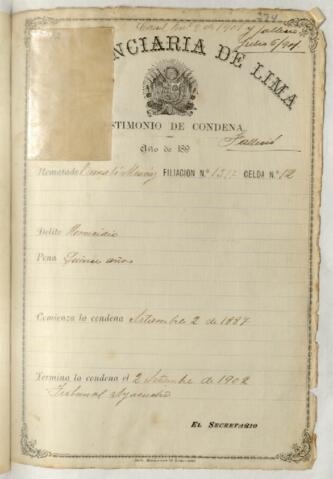 y falleció
Julio 6/901
NCIARIA DE LIMA
STIMONIO DE CONDENA
Año de 189
Falleció
Rematado FILIACION N.° CELDA N.° 12
Delito Homicidio
Pena Quince años
Comienza la condena Setiembre 2 de 1887
Termina la condena el 2 Setiembre de 1902
Tribunal Ayacucho
EL SECRETARIO